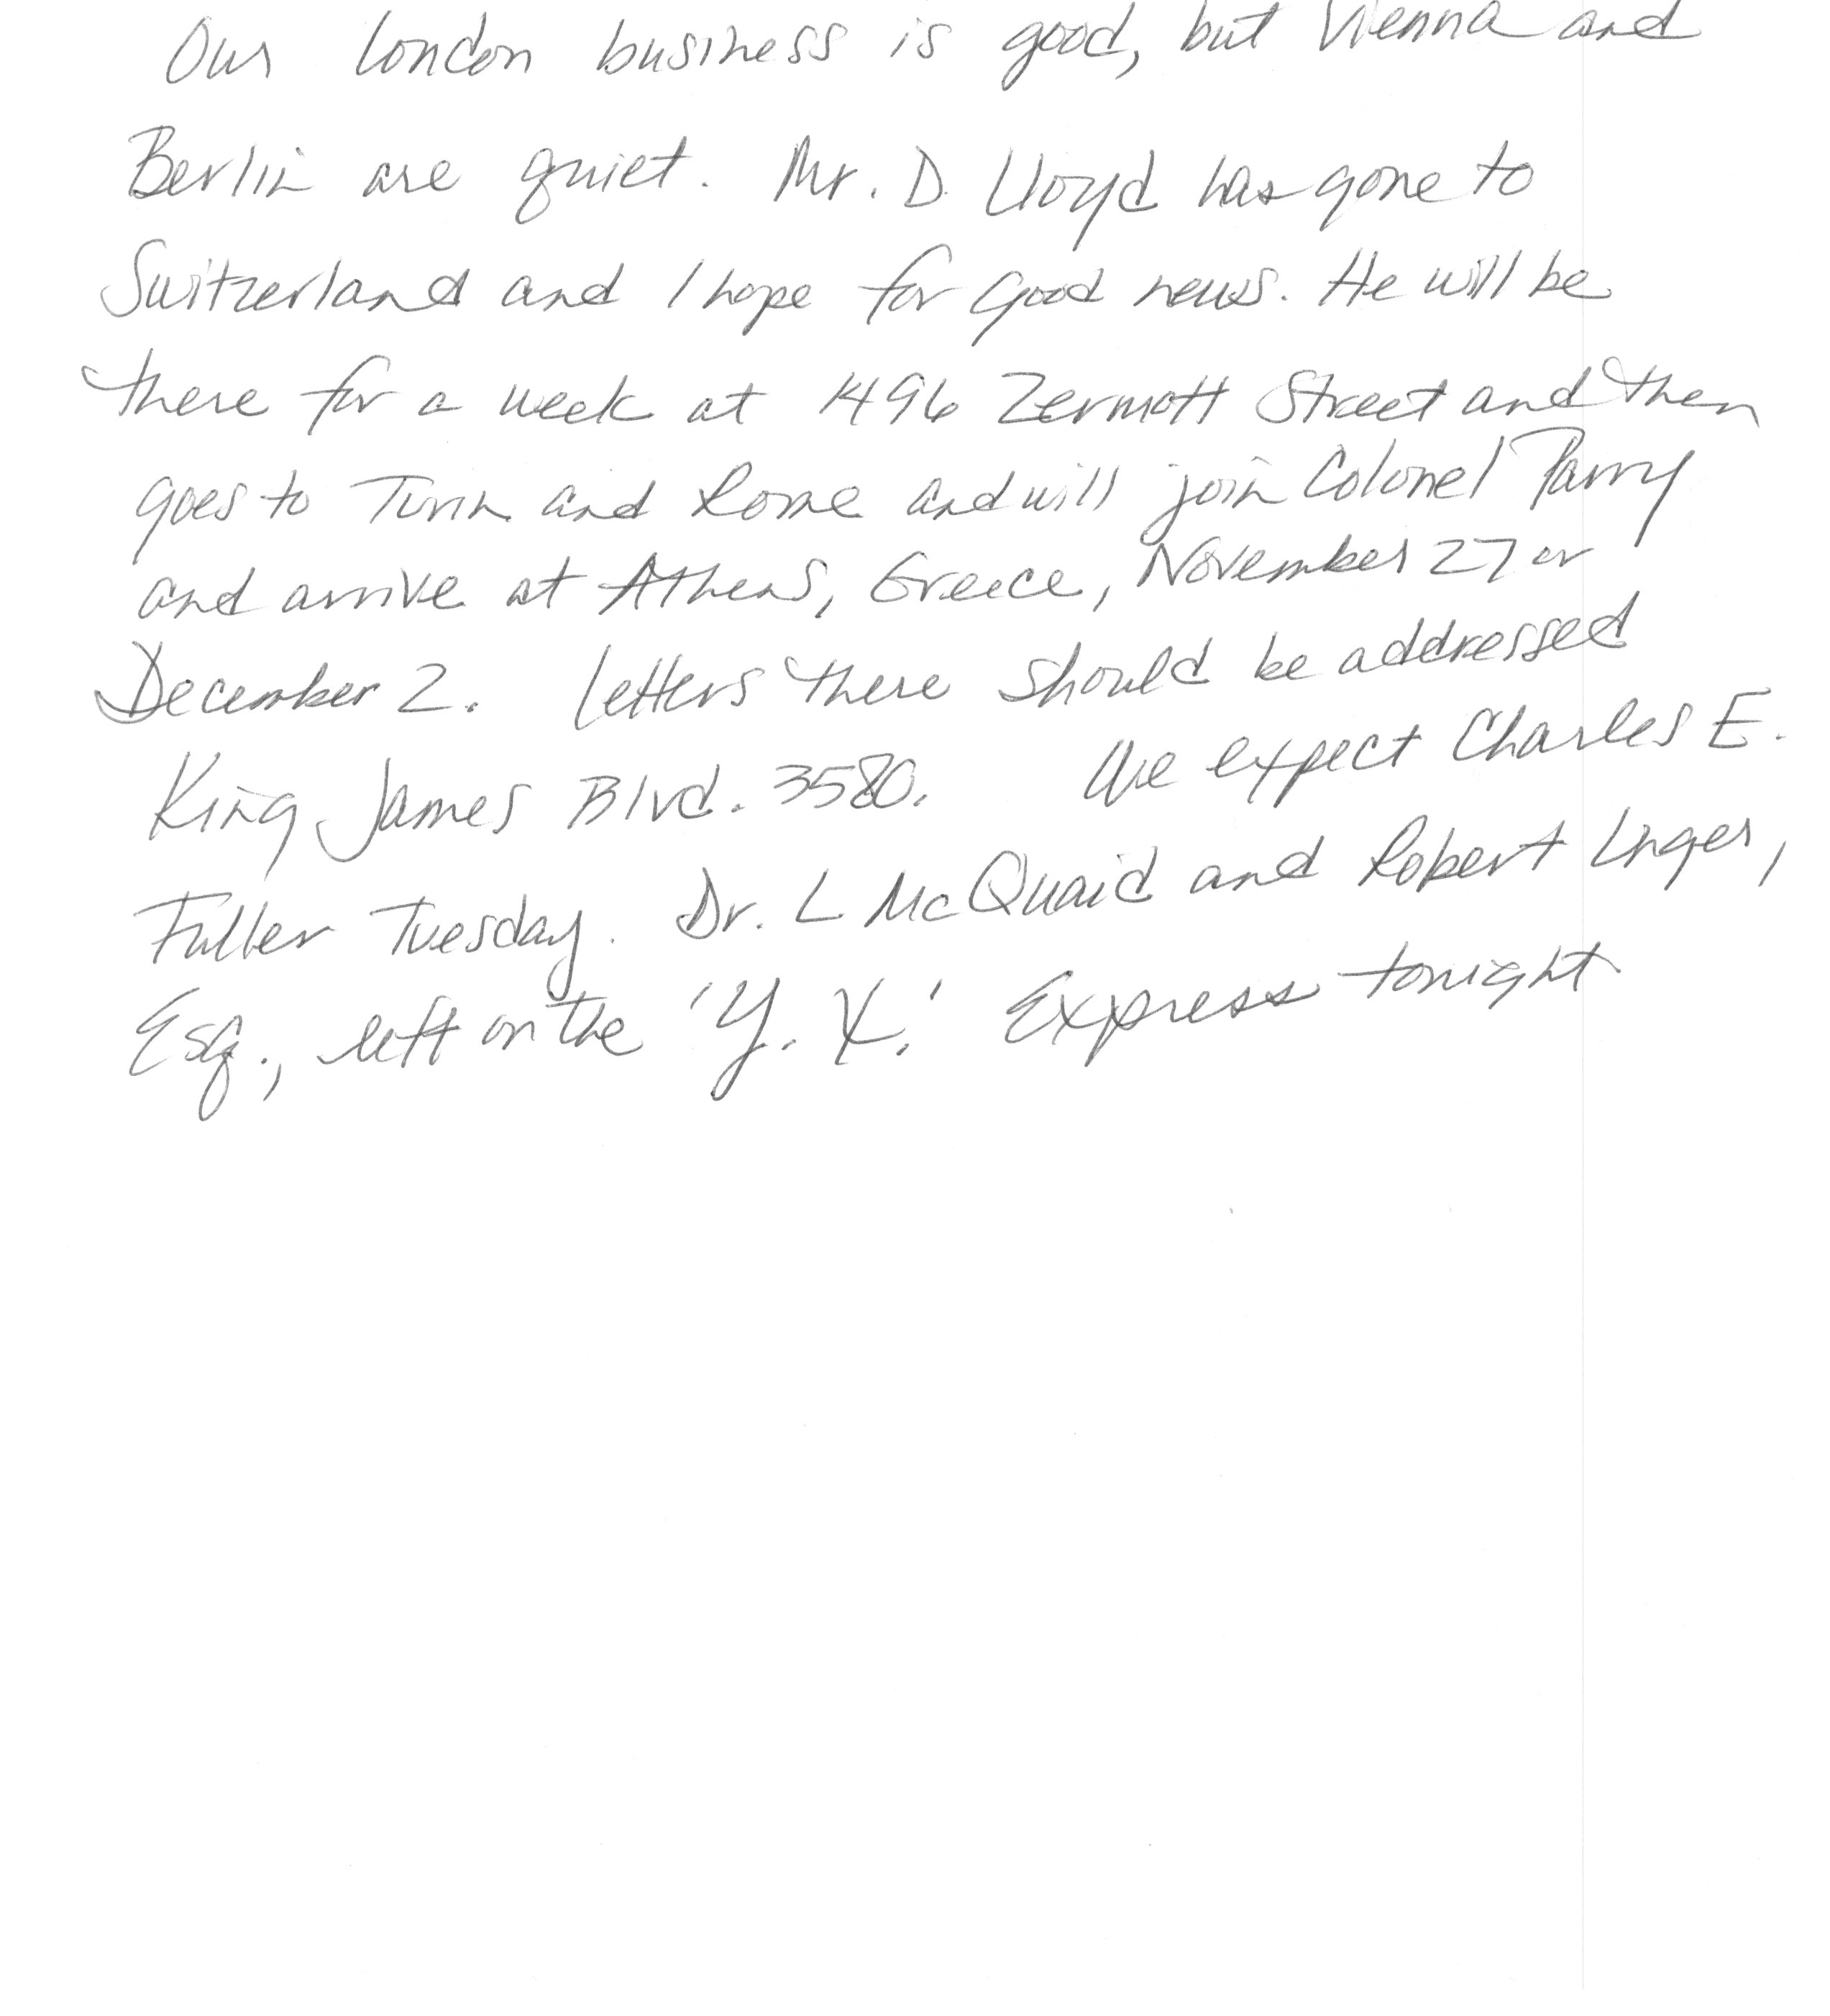 Our London business is good, but Vienna and
Berlin are quiet. Mr. D. Lloyd has gone to
Switzerland and I hope for good news. He will be
there for a week at 1496 Zermott Street and then
goes to Turin and Rome and will join Colonel Parry
and arrive at Athens, Greece, November 27 or
December 2. Letters there should be addressed
King James Blvd. 3580. We expect Charles E.
Fuller Tuesday. Dr. L McQuaid and Robert Unger,
Esq., left on the 'Y. X.' Express tonight